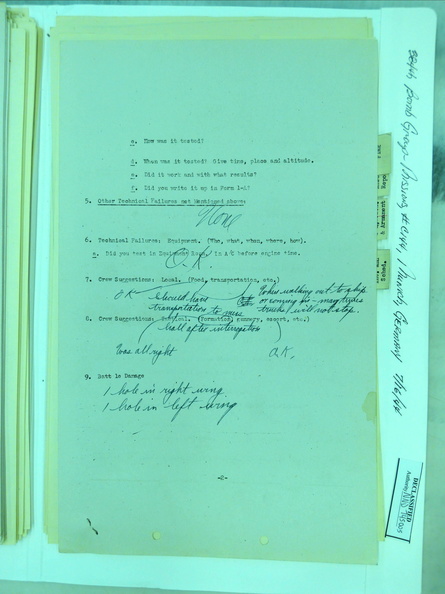 c. How was it tested?
d. When was it tested? Give time, place and altitude.
e. Did it work and with what results?
f. Did you write it up in Form 1-A?
5. Other Technical Failures not Mentioned above:
None
6. Technical Failures: Equipment. (Who, what, when, where, how).
a. Did you test in Equipment Room, in A/C before engine time.
O.K.
7. Crew Suggestions: Local. (Food, transportation, etc.)
OK - Should have
transportation to mess
hall after interrogation
When walking out to ship
or coming in - many times
trucks will not stop.
8. Crew Suggestions: Tactical. (Formation, gunnery, escort, etc.)
Was all right
O.K.
9. Battle Damage
1 hole in right wing
1 hole in left wing
-2-
Bomb Group - Missing
Munich, Germany
& Armament
DECLASSIFIED
Authority NND 745005